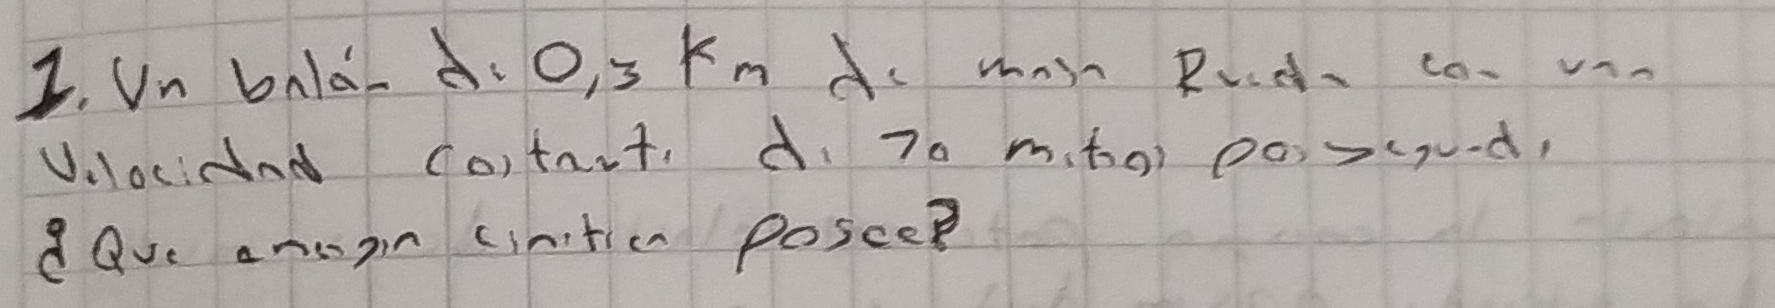 1. Un balón de 0,3 Km de masa Rueda con una
Velocidad costante de 70 metros por segundo,
¿Que energia cinetica posee?